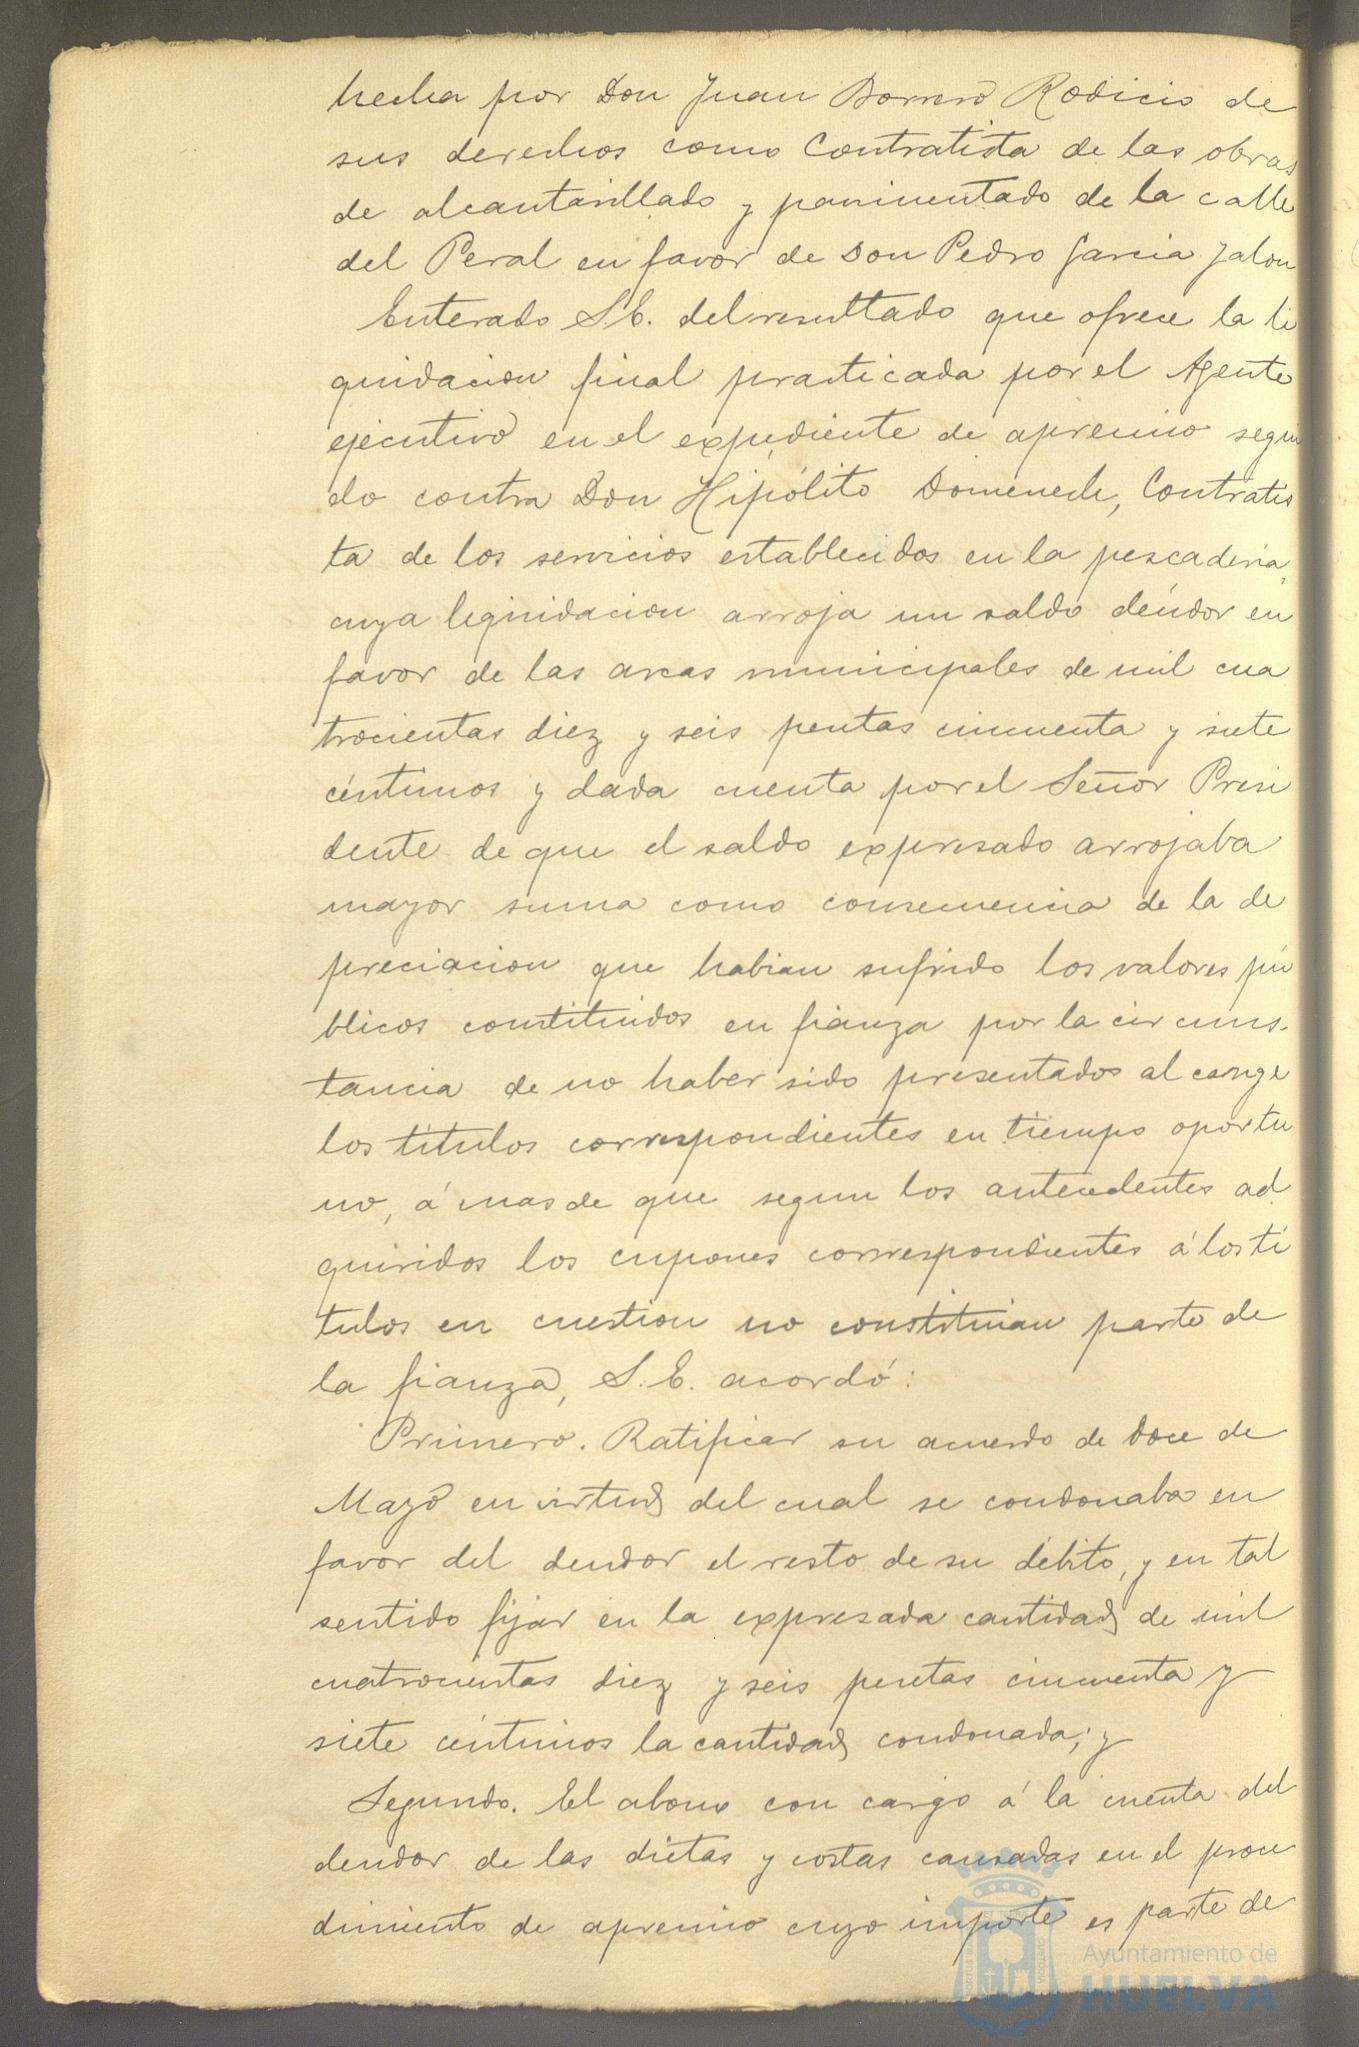 hecha por Don Juan Borrero Rodicio de
sus derechos como Contratista de las obras
de alcantarillado y pavimentado de la calle
del Peral en favor de Don Pedro Garcia Jalon
Enterado S.E. del resultado que ofrece la li
quidacion final practicada por el Agente
ejecutivo en el expediente de apremio segui
do contra Don Hipólito Domenech, Contratis
ta de los servicios establecidos en la pescadería,
cuya liquidacion arroja un saldo deudor en
favor de las arcas municipales de mil cua
trocientas diez y seis pesetas cincuenta y siete
céntimos y dada cuenta por el Señor Presi
dente de que el saldo expresado arrojaba
mayor suma como consecuencia de la de
preciacion que habian sufrido los valores pú
blicos constituidos en fianza por la circuns-
tancia de no haber sido presentados al cange
los títulos correspondientes en tiempo oportu
no, á mas de que segun los antecedentes ad
quiridos los cupones correspondientes á los tí
tulos en cuestion no constituian parte de
la fianza, S.E. acordó:
Primero. Ratificar su acuerdo de doce de
Mayo en virtud del cual se condonaba en
favor del deudor el resto de su débito, y en tal
sentido fijar en la expresada cantidad de mil
cuatrocientas diez y seis pesetas cincuenta y
siete céntimos la cantidad condonada; y
Segundo. El abono con cargo á la cuenta del
deudor de las dietas y costas causadas en el proce
dimiento de apremio cuyo importe es parte de
Ayuntamiento de
HUELVA